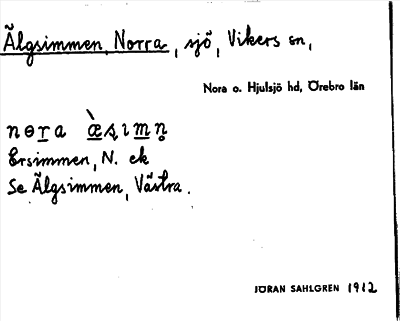 Älgsimmen, Norra, sjö, Vikers sn,
Nora o. Hjulsjö hd, Örebro län
Ersimmen, N. ek
Se Älgsimmen, Västra.
JÖRAN SAHLGREN 1912